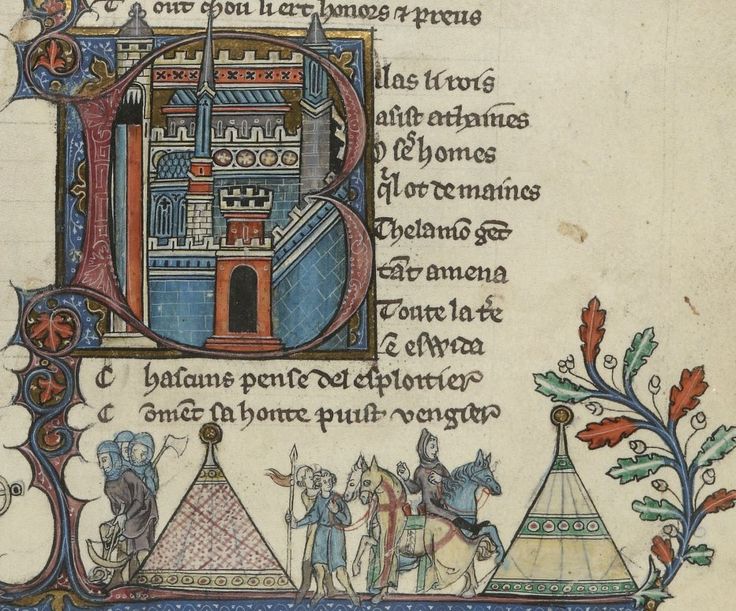 T out chou li ert honors ⁊ preus
B ilas li rois
asist athaines
O seˢ homes
q̃l ot de maines
Thelamō gēt
tāt amena
Toute la t̃re
ē eswida
C hascuns pense del esploitier
C ōmēt sa honte puist vengier